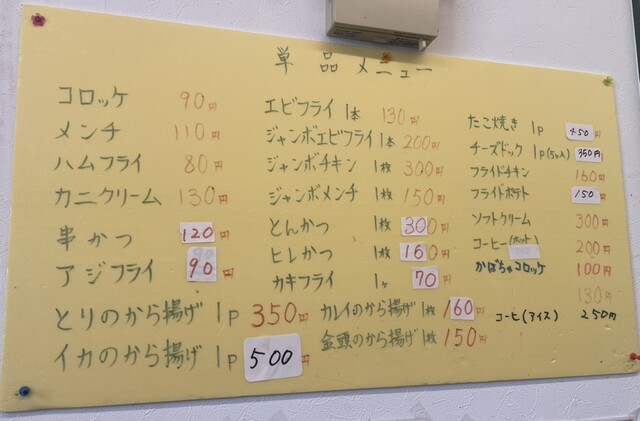 単品メニュー
コロッケ 90円
メンチ 110円
ハムフライ 80円
カニクリーム 130円
串かつ 120円
アジフライ 90円
とりのから揚げ 1p 350円
イカのから揚げ 1p 500円
エビフライ 1本 130円
ジャンボエビフライ 1本 200円
ジャンボチキン 1枚 300円
ジャンボメンチ 1枚 150円
とんかつ 1枚 300円
ヒレかつ 1枚 160円
カキフライ 1ヶ 70円
カレイのから揚げ 1枚 160円
金頭のから揚げ 1枚 150円
たこ焼き 1p 450円
チーズドック 1p(5ヶ入) 350円
フライドチキン 160円
フライドポテト 150円
ソフトクリーム 300円
コーヒー(ホット) 200円
かぼちゃコロッケ 100円
130円
コーヒ(アイス) 250円